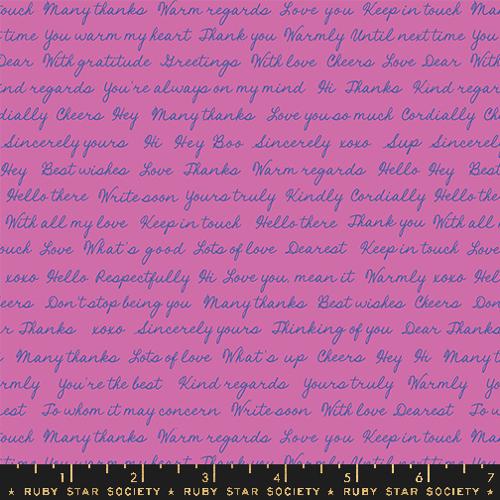 ouch Many thanks Warm regards Love you Keep in touch Ma
time You warm my heart Thank you Warmly Until next time You
Dear With gratitude Greetings With love Cheers Love Dear With
nd regards You're always on my mind Hi Thanks Kind regar
dially Cheers Hey Many thanks Love you so much Cordially Ch
Sincerely yours Hi Hey Boo Sincerely xoxo Sup Sincerel
Hey Best wishes Love Thanks Warm regards Hello Hey Best
Hello there Write soon Yours truly Kindly Cordially Hello the
With all my love Keep in touch Hello there Thank you With all
ouch Love What's good Lots of love Dearest Keep in touch Love
xoxo Hello Respectfully Hi Love you, mean it Warmly xoxo Hel
eers Don't stop being you Many thanks Best wishes Cheers Don
r Thanks xoxo Sincerely yours Thinking of you Dear Thanks
Many thanks Lots of love What's up Cheers Hey Hi Many t
rmly You're the best Kind regards Yours truly Warmly Yo
est To whom it may concern Write soon With love Dearest To w
ouch Many thanks Warm regards Love you Keep in touch Ma
time You warm my heart Thank you Warmly Until next time You
1 2 3 4 5 6 7
★ RUBY STAR SOCIETY ★ RUBY STAR SOCIETY ★ RUBY STAR SOCIETY ★ RUBY STAR SOCIETY